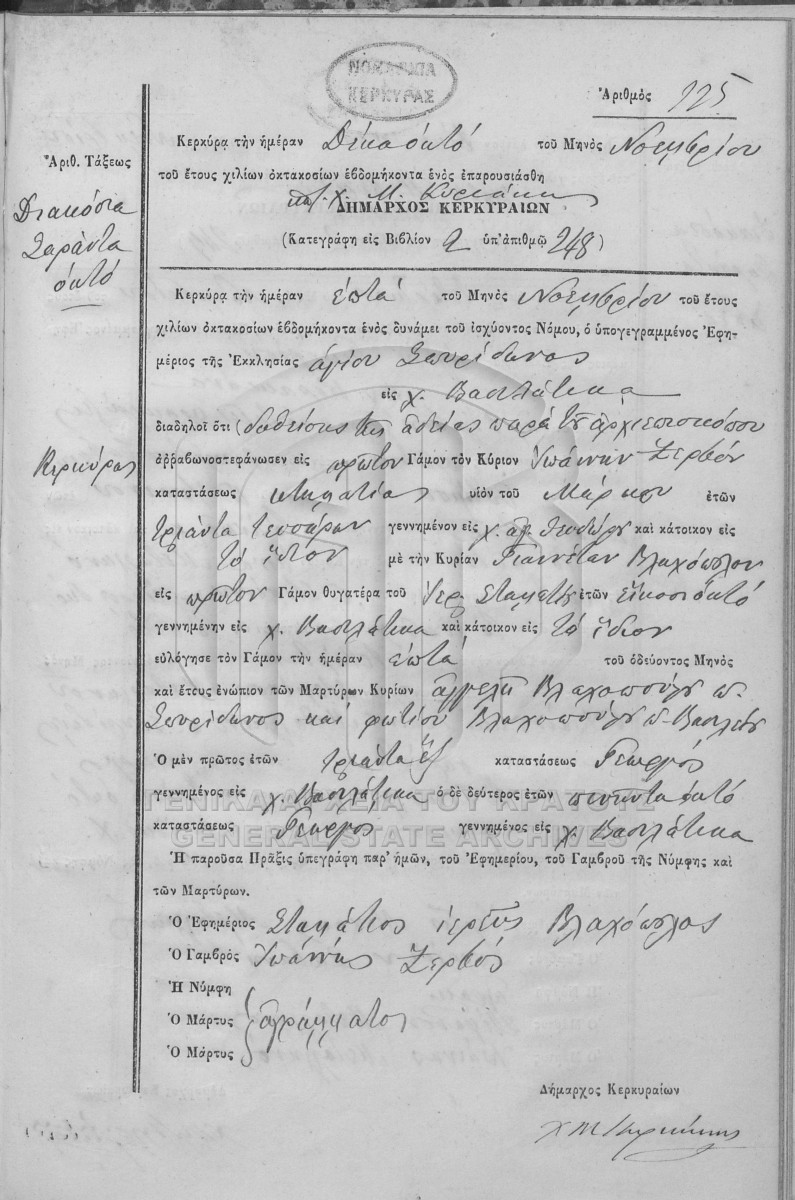 ΝΟΜΑΡΧΙΑ
ΚΕΡΚΥΡΑΣ
Ἀριθμὸς 225
Κερκύρᾳ τὴν ἡμέραν Δέκα ὀκτό τοῦ Μηνὸς Νοεμβρίου
τοῦ ἔτους χιλίων ὀκτακοσίων ἑβδομήκοντα ἑνὸς ἐπαρουσιάσθη
Χ. Μ. Κυριάκη
ΔΗΜΑΡΧΟΣ ΚΕΡΚΥΡΑΙΩΝ
(Κατεγράφη εἰς Βιβλίον 2 ὑπ' ἀπιθμῷ 248)
Ἀριθ. Τάξεως
Διακόσια
Σαράντα
ὀκτό
Κερκύρᾳ τὴν ἡμέραν ἑπτά τοῦ Μηνὸς Νοεμβρίου τοῦ ἔτους
χιλίων ὀκτακοσίων ἑβδομήκοντα ἑνὸς δυνάμει τοῦ ἰσχύοντος Νόμου, ὁ ὑπογεγραμμένος Ἐφη-
μέριος τῆς Ἐκκλησίας ἁγίου Σπυρίδωνος
εἰς χ. Βασιλάτικα
διαδηλοῖ ὅτι (δοθείσης τῆς ἀδείας παρὰ τοῦ ἀρχιεπισκόπου
Κερκύρας
ἀῤῥαβωνοστεφάνωσεν εἰς πρῶτον Γάμον τὸν Κύριον Ἰωάννην Ζερβόν
καταστάσεως κτηματίας υἱὸν τοῦ Μάρκου ἐτῶν
τριάντα τεσσάρων γεννημένον εἰς χ. ἁγ. Θεοδώρου καὶ κάτοικον εἰς
τὸ ἴδιον μὲ τὴν Κυρίαν Γιαννέταν Βλαχόπουλον
εἰς πρῶτον Γάμον θυγατέρα τοῦ Ἱερ. Σταματίου ἐτῶν εἴκοσι ὀκτό
γεννημένην εἰς χ. Βασιλάτικα καὶ κάτοικον εἰς τὸ ἴδιον
εὐλόγησε τὸν Γάμον τὴν ἡμέραν ἑπτά τοῦ ὁδεύοντος Μηνὸς
καὶ ἔτους ἐνώπιον τῶν Μαρτύρων Κυρίων ἀγγελῆ Βλαχοπούλου π.
Σπυρίδωνος καὶ φωτίου Βλαχοπούλου π. Βασιλείου
Ὁ μὲν πρῶτος ἐτῶν τριάντα ἕξ καταστάσεως Γεωργός
γεννημένος εἰς χ. Βασιλάτικα ὁ δὲ δεύτερος ἐτῶν πενῆντα ὀκτό
καταστάσεως Γεωργός γεννημένος εἰς χ. Βασιλάτικα
ΓΕΝΙΚΑ ΑΡΧΕΙΑ ΤΟΥ ΚΡΑΤΟΥΣ
GENERAL STATE ARCHIVES
Ἡ παροῦσα Πρᾶξις ὑπεγράφη παρ' ἡμῶν, τοῦ Ἐφημερίου, τοῦ Γαμβροῦ τῆς Νύμφης καὶ
τῶν Μαρτύρων.
Ὁ Ἐφημέριος Σταμάτιος ἱερεὺς Βλαχόπουλος
Ὁ Γαμβρὸς Ἰωάννης Ζερβός
Ἡ Νύμφη
Ὁ Μάρτυς ἀγράμματοι
Ὁ Μάρτυς
Δήμαρχος Κερκυραίων
Χ Μ Κυριάκης